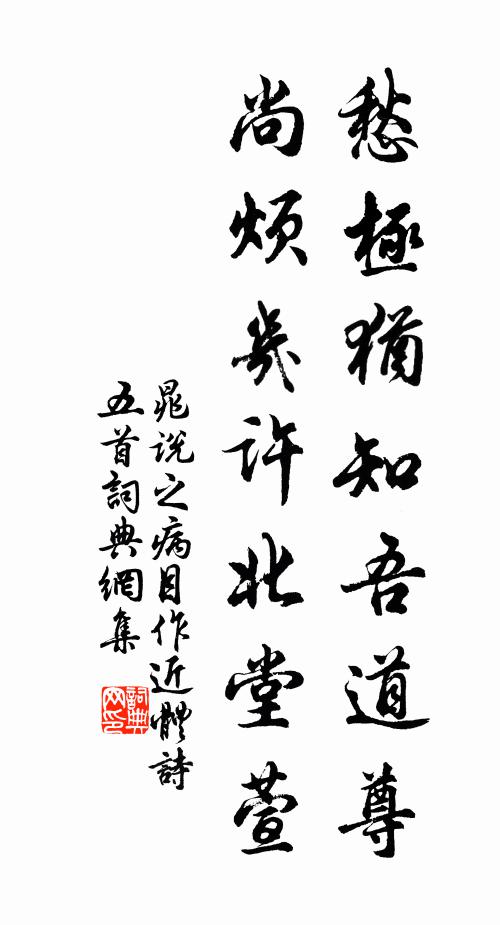 愁極猶知吾道尊
尚煩幾許北堂萱
晁說之病目作近體詩
五首詞典網集
詞典
网印